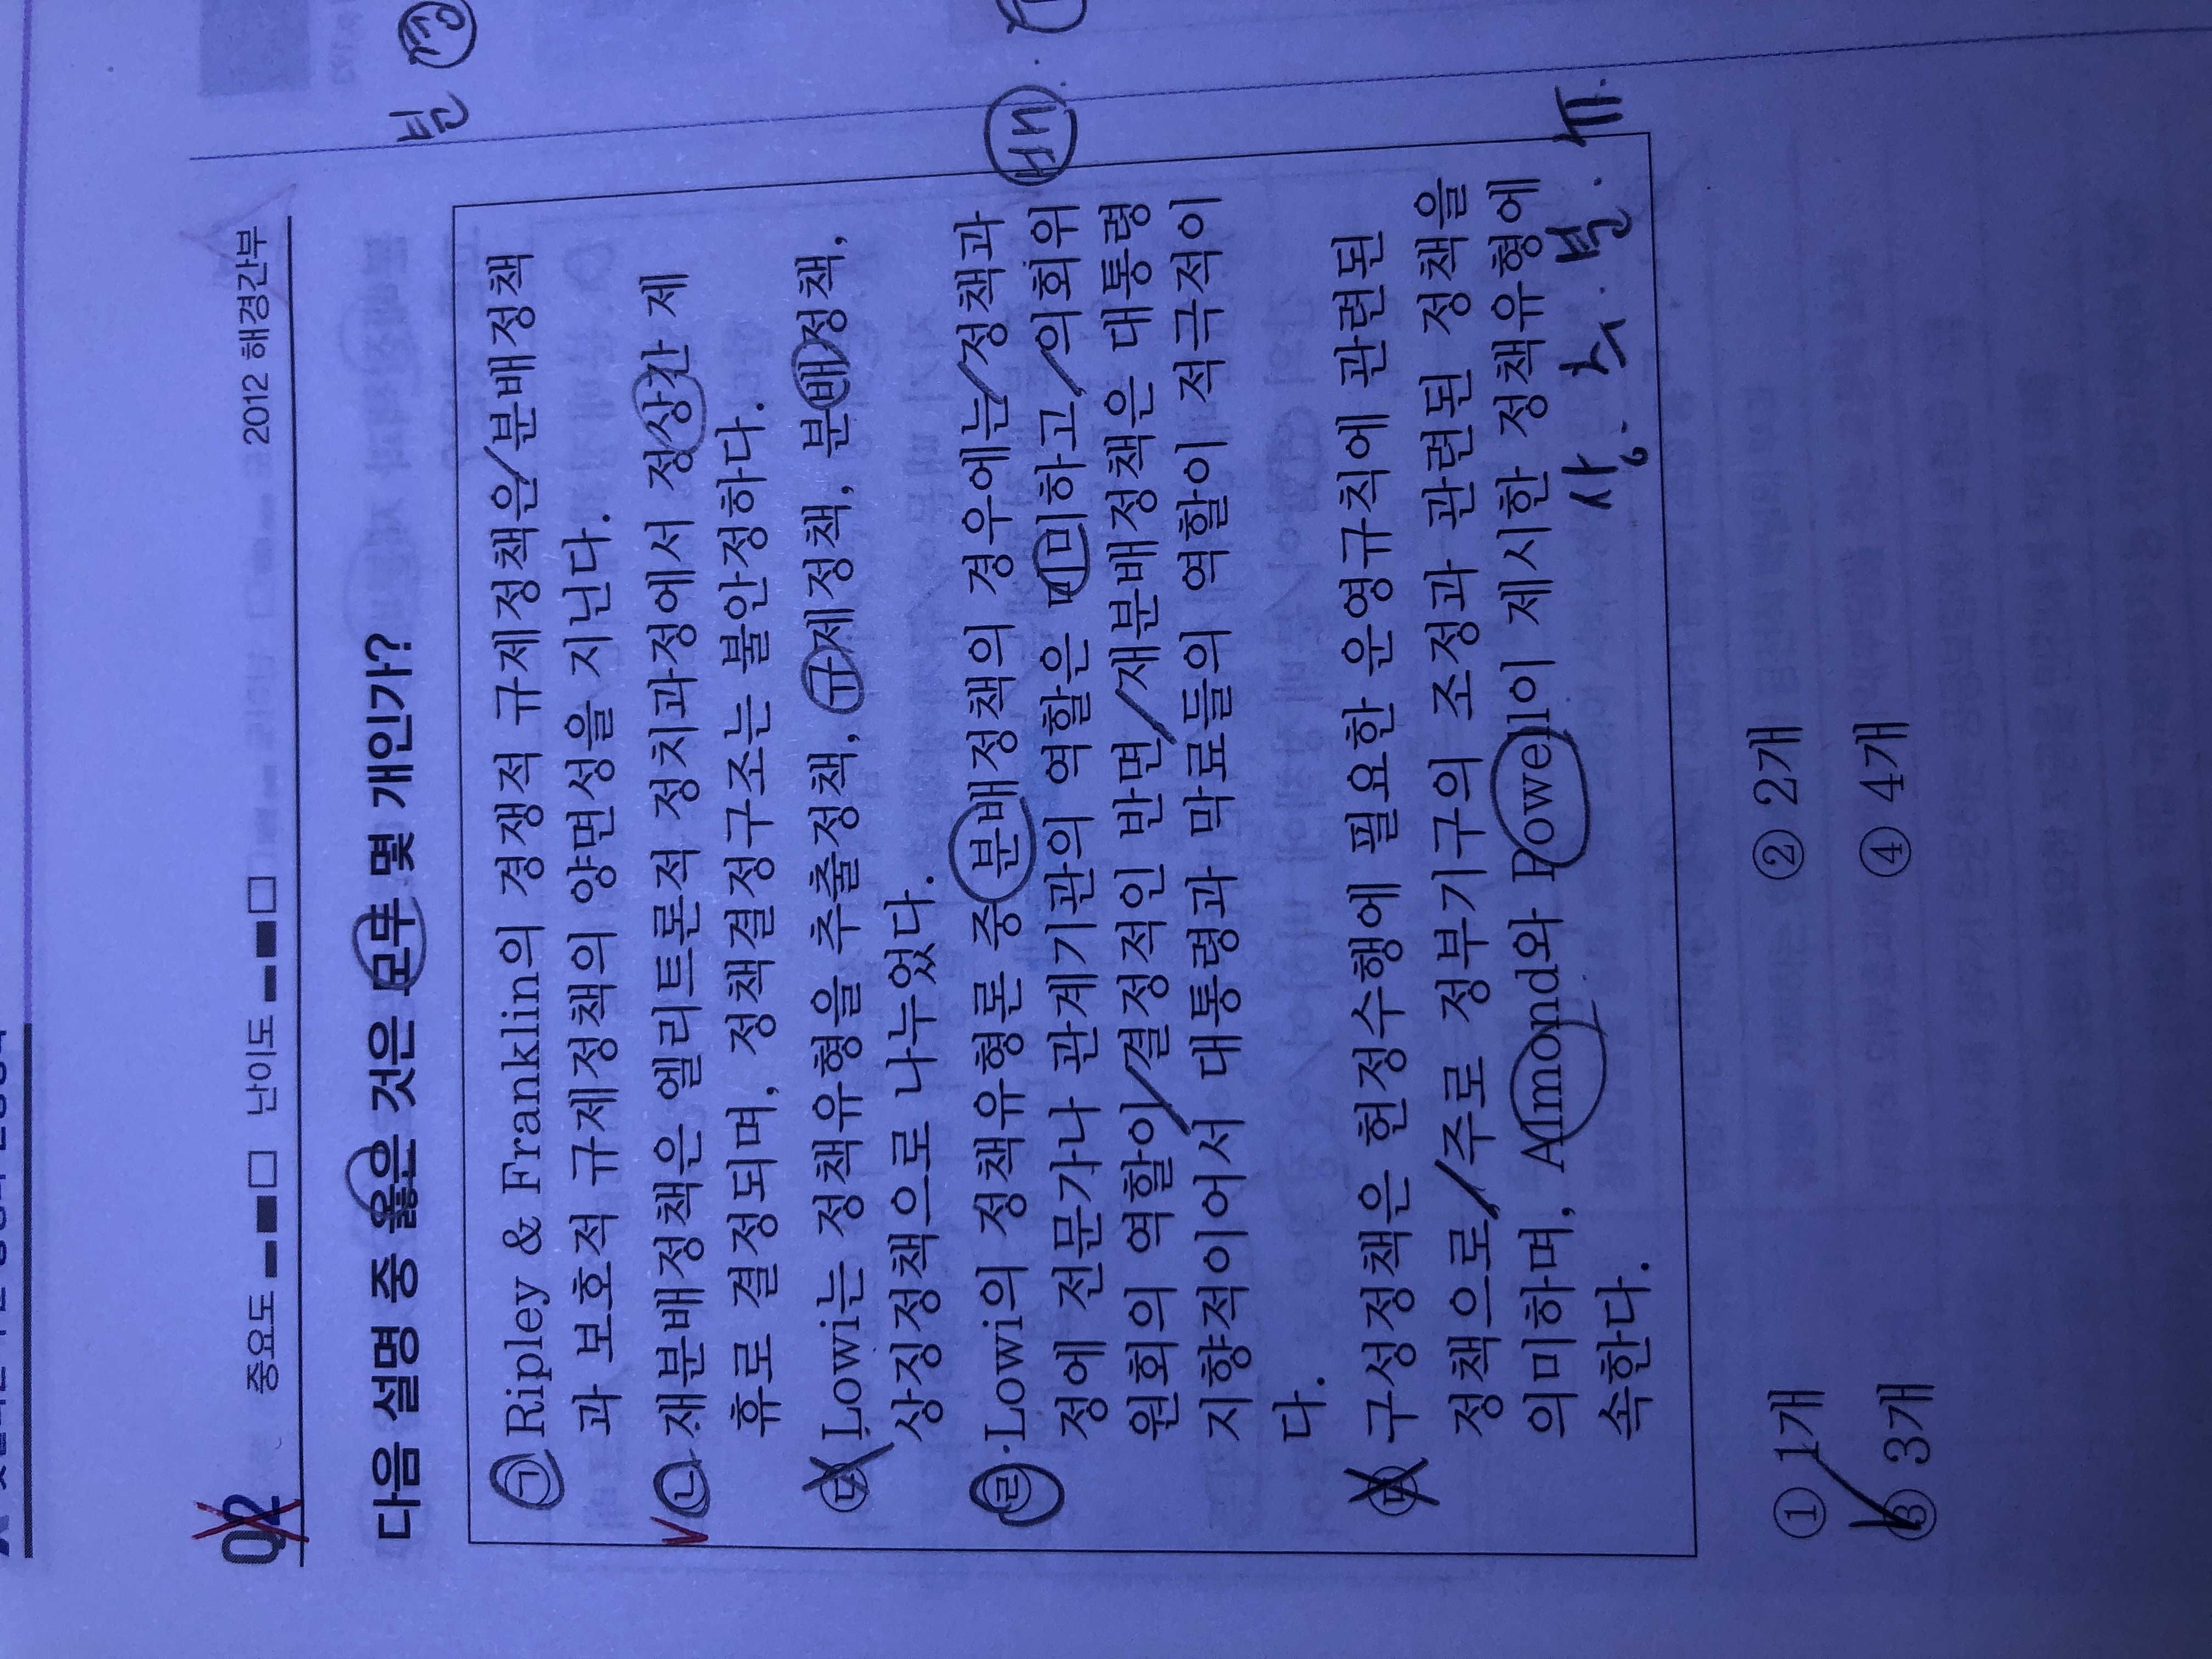 Q2 중요도 난이도 2012 해경간부
다음 설명 중 옳은 것은 모두 몇 개인가?
㉠ Ripley & Franklin의 경쟁적 규제정책은 분배정책
과 보호적 규제정책의 양면성을 지닌다.
㉡ 재분배정책은 엘리트론적 정치과정에서 정상간 제
휴로 결정되며, 정책결정구조는 불안정하다.
㉢ Lowi는 정책유형을 추출정책, 규제정책, 분배정책,
상징정책으로 나누었다.
㉣ Lowi의 정책유형론 중 분배정책의 경우에는 정책과
정에 전문가나 관계기관의 역할은 미미하고 의회위
원회의 역할이 결정적인 반면 재분배정책은 대통령
지향적이어서 대통령과 막료들의 역할이 적극적이
다.
㉤ 구성정책은 헌정수행에 필요한 운영규칙에 관련된
정책으로 주로 정부기구의 조정과 관련된 정책을
의미하며, Almond와 Powell이 제시한 정책유형에
속한다.
① 1개 ② 2개
③ 3개 ④ 4개